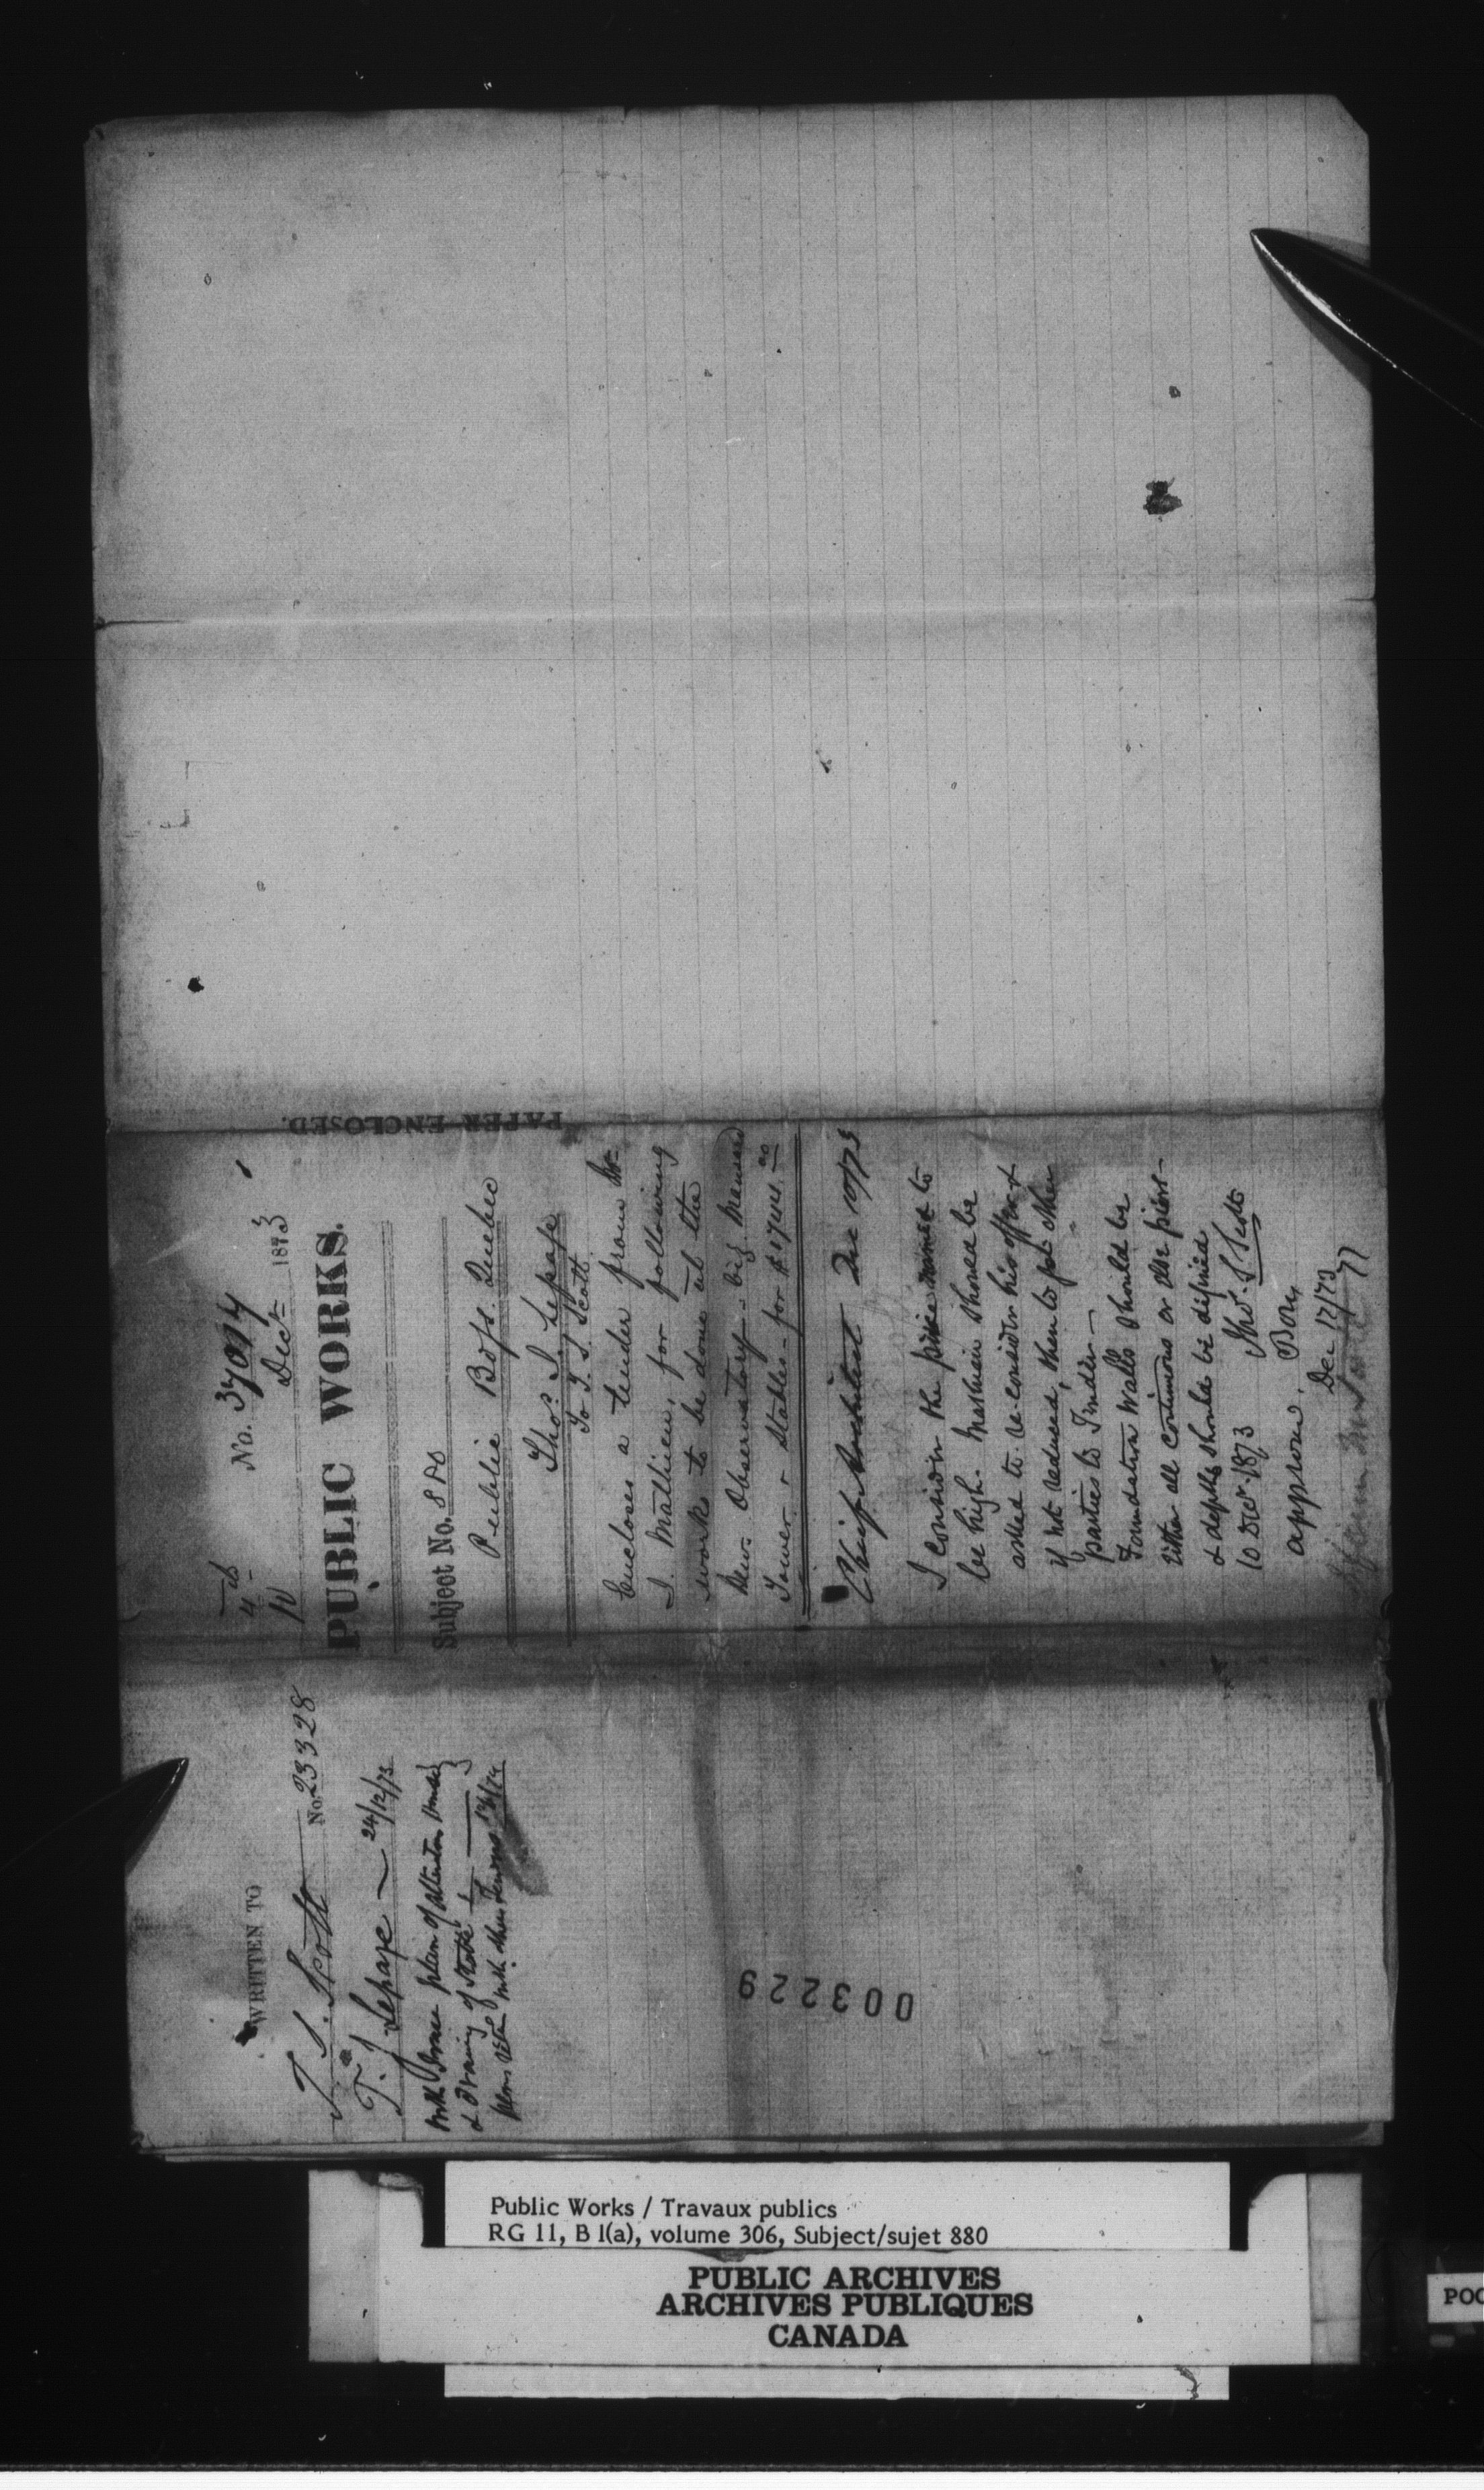 4th
12
No. 37014
Decr 1873
PUBLIC WORKS.
Subject No. 880
Public Bdgs. Quebec
Thos. J. Lepage
To T. S. Scott
Encloses a tender from Mr
J. Mathieu, for following
works to be done at the
New Observatory - big Mansard
Tower & Stables - for
Chief Architect Dec 10/73
I consider the price named to
be high. Mathieu should be
asked to re-consider his offer &
if not reduced, then to get other
parties to Tender -
Foundation Walls should be
either all continuous or else piers -
& depths should be defined
10 Decr. 1873 Thos. S Scott
approved
Dec 17/73
77
PAPER ENCLOSED.
WRITTEN TO
T. S. Scott No. 23328
T. J. Lepage - 24/12/73
plan of
& Drawing of
003229
Public Works / Travaux publics
RG 11, B 1(a), volume 306, Subject/sujet 880
PUBLIC ARCHIVES
ARCHIVES PUBLIQUES
CANADA
POO